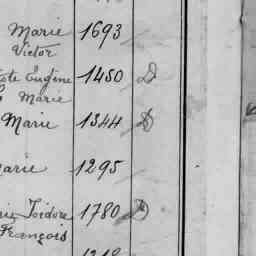 Marie 1693
Victor
Eugène 1450 D
Marie
Marie 1344 D
Marie 1295
Isidore 1780 D
François
1218